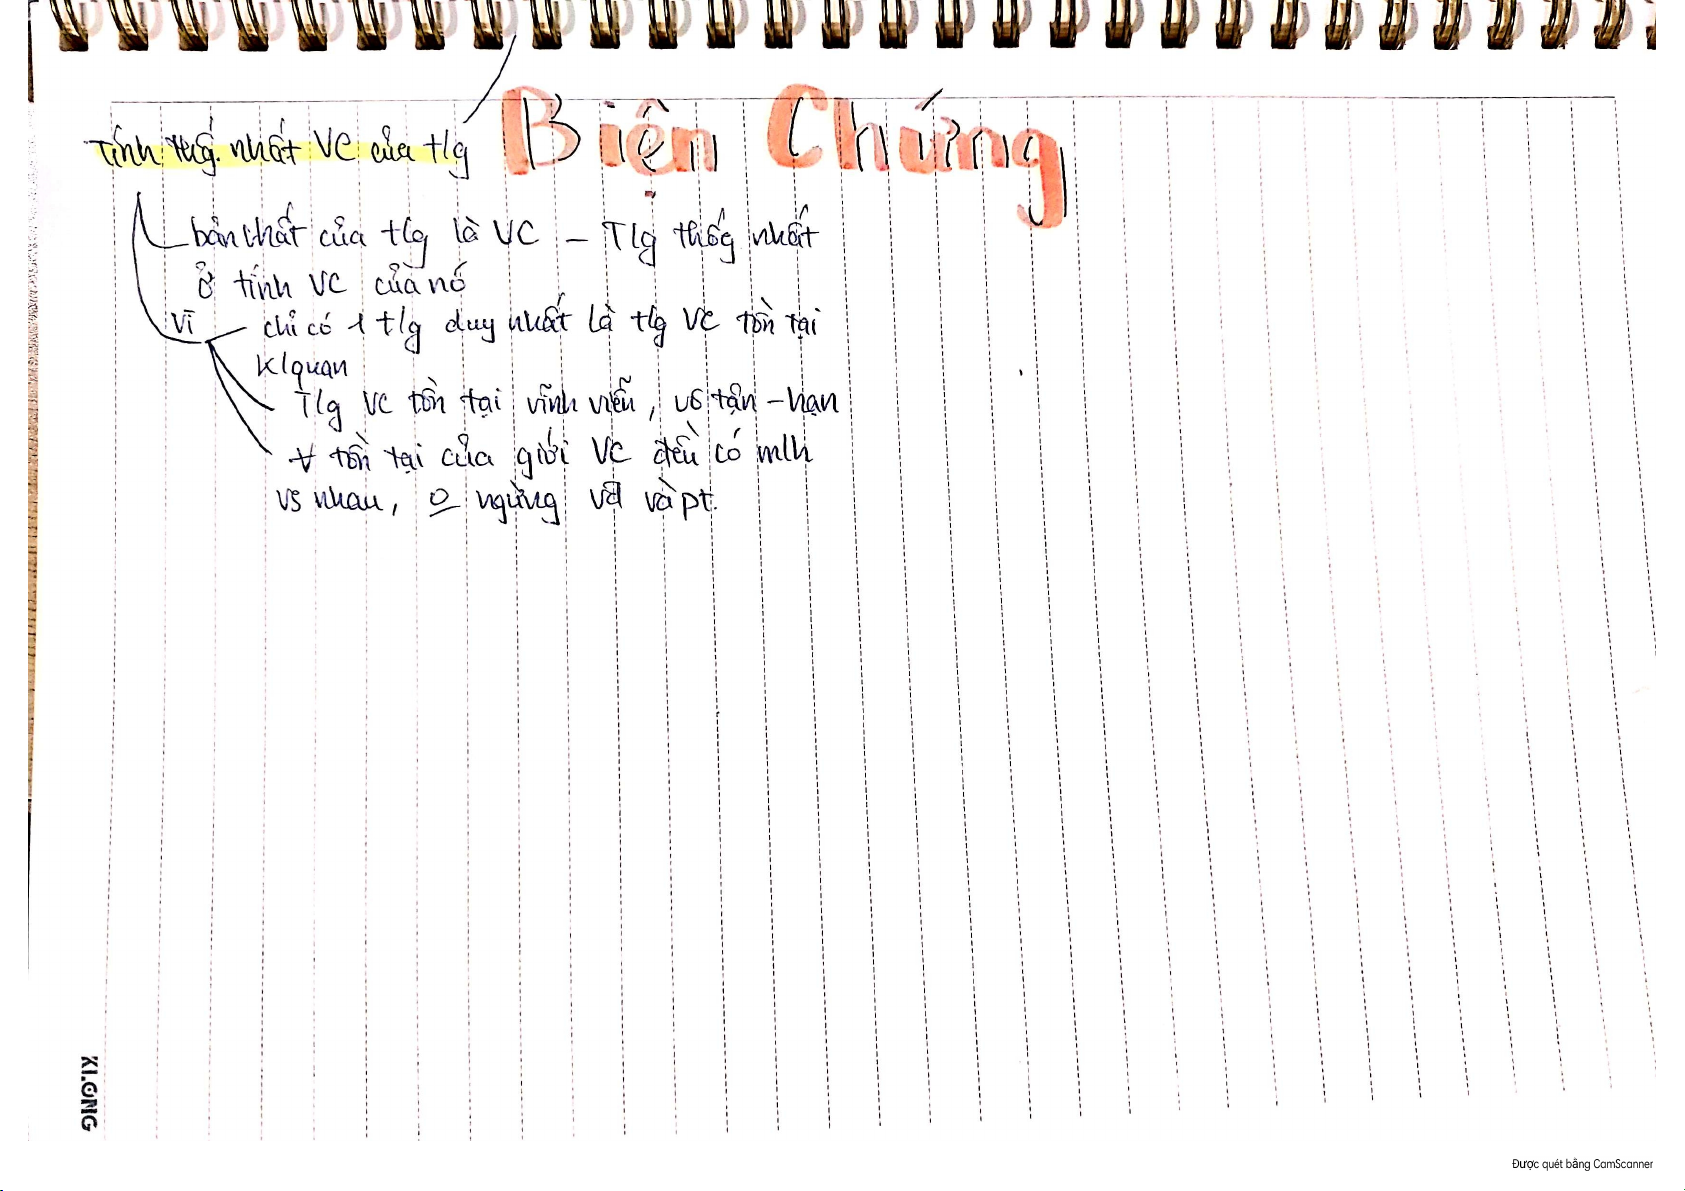 Biện Chứng
Tính thg. nhất VC của tlg
bản chất của tlg là VC – Tlg thốg nhất
ở tính VC của nó
Vì – chỉ có 1 tlg duy nhất là tlg VC tồn tại
K/quan
Tlg VC tồn tại vĩnh viễn, vô tận – hạn
∀ tồn tại của giới VC đều có mlh
vs nhau, 0 ngừng vđ và pt.
KLONG
Được quét bằng CamScanner